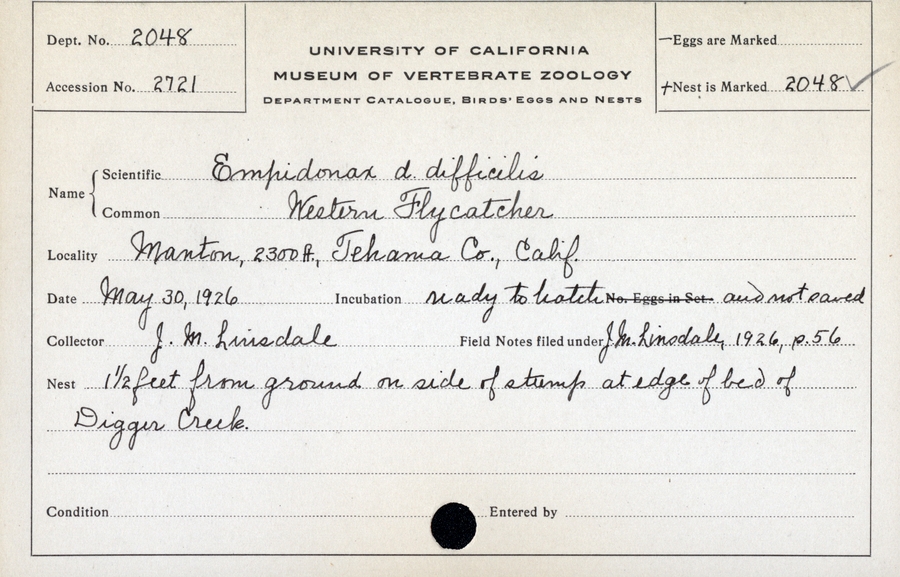 Dept. No. 2048
Accession No. 2721
UNIVERSITY OF CALIFORNIA
MUSEUM OF VERTEBRATE ZOOLOGY
DEPARTMENT CATALOGUE, BIRDS' EGGS AND NESTS
—Eggs are Marked
+Nest is Marked 2048 ✓
Name { Scientific Empidonax d. difficilis
Common Western Flycatcher
Locality Manton, 2300 ft., Tehama Co., Calif.
Date May 30, 1926 Incubation ready to hatch No. Eggs in Set and not saved
Collector J. M. Linsdale Field Notes filed under J.M. Linsdale, 1926, p. 56
Nest 1½ feet from ground on side of stump at edge of bed of
Digger Creek.
Condition Entered by